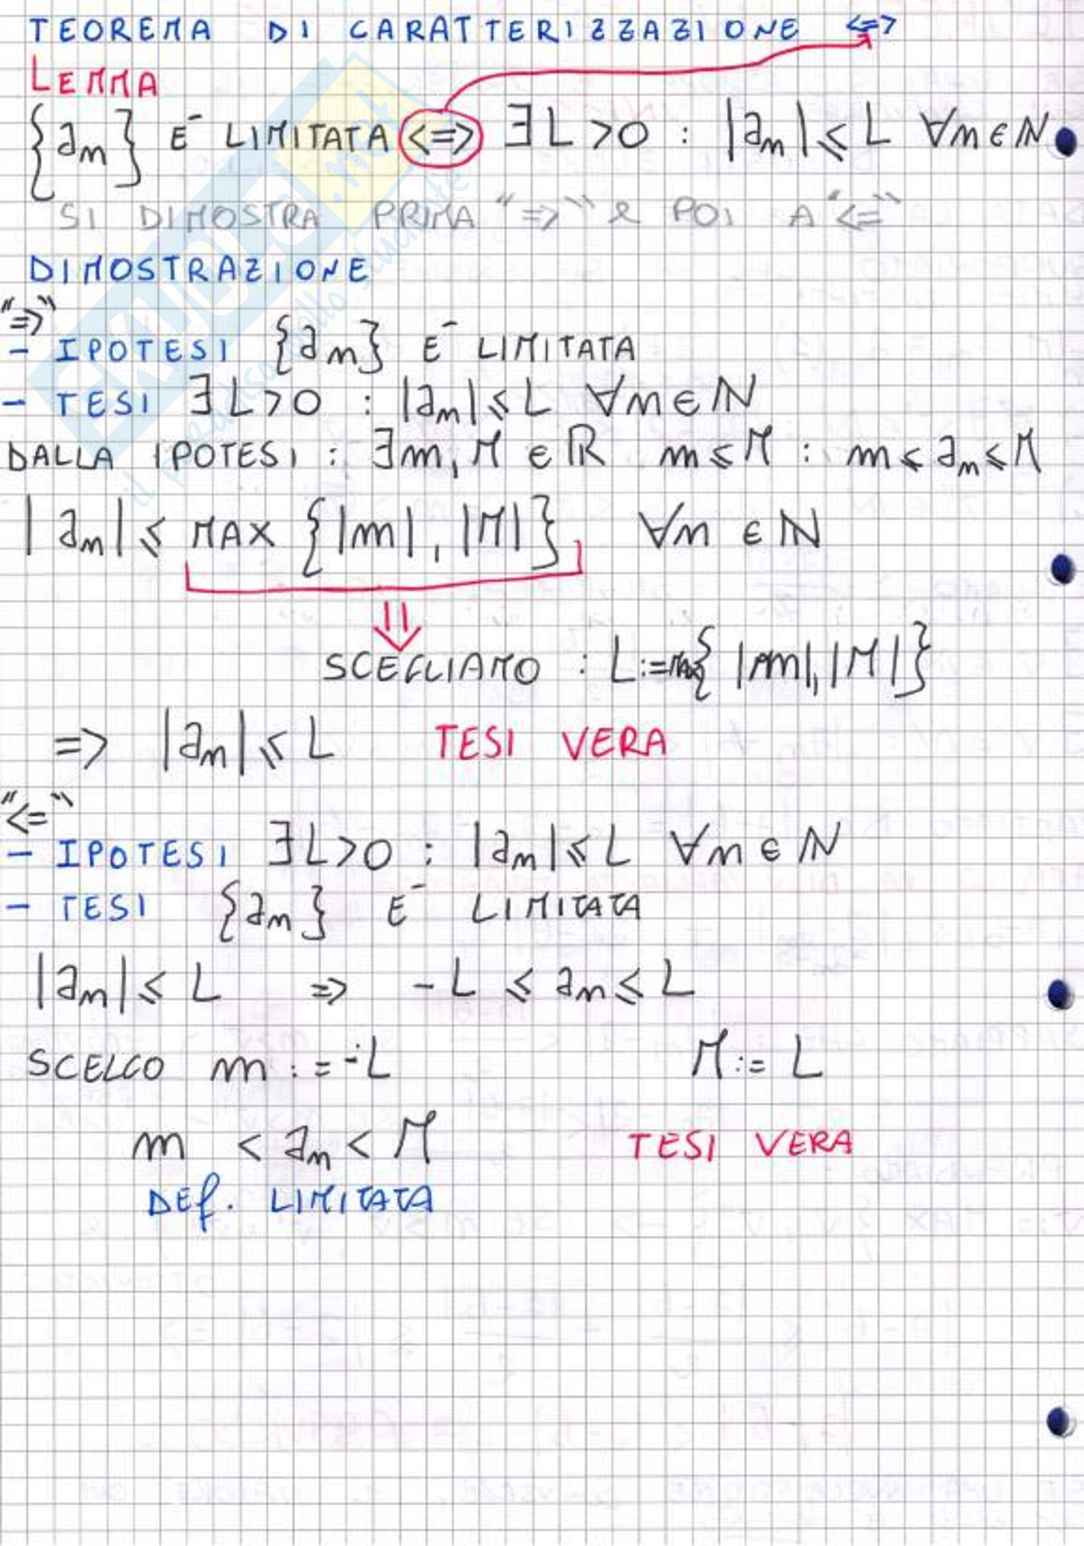 TEOREMA DI CARATTERIZZAZIONE <=>
LEMMA
{an} E- LIMITATA <=> ∃ L > 0 : |an| ≤ L ∀n ∈ N
SI DIMOSTRA PRIMA "=>" e POI A "<="
DIMOSTRAZIONE
"=>"
- IPOTESI {an} E- LIMITATA
- TESI ∃ L > 0 : |an| ≤ L ∀n ∈ N
DALLA IPOTESI : ∃m, M ∈ R m ≤ M : m ≤ an ≤ M
|an| ≤ MAX {|m|, |M|} ∀n ∈ N
SCEGLIAMO : L := max{ |m|, |M| }
=> |an| ≤ L TESI VERA
"<="
- IPOTESI ∃ L > 0 : |an| ≤ L ∀n ∈ N
- TESI {an} E- LIMITATA
|an| ≤ L => - L ≤ an ≤ L
SCELGO m := -L M := L
m < an < M TESI VERA
DEf. LIMITATA